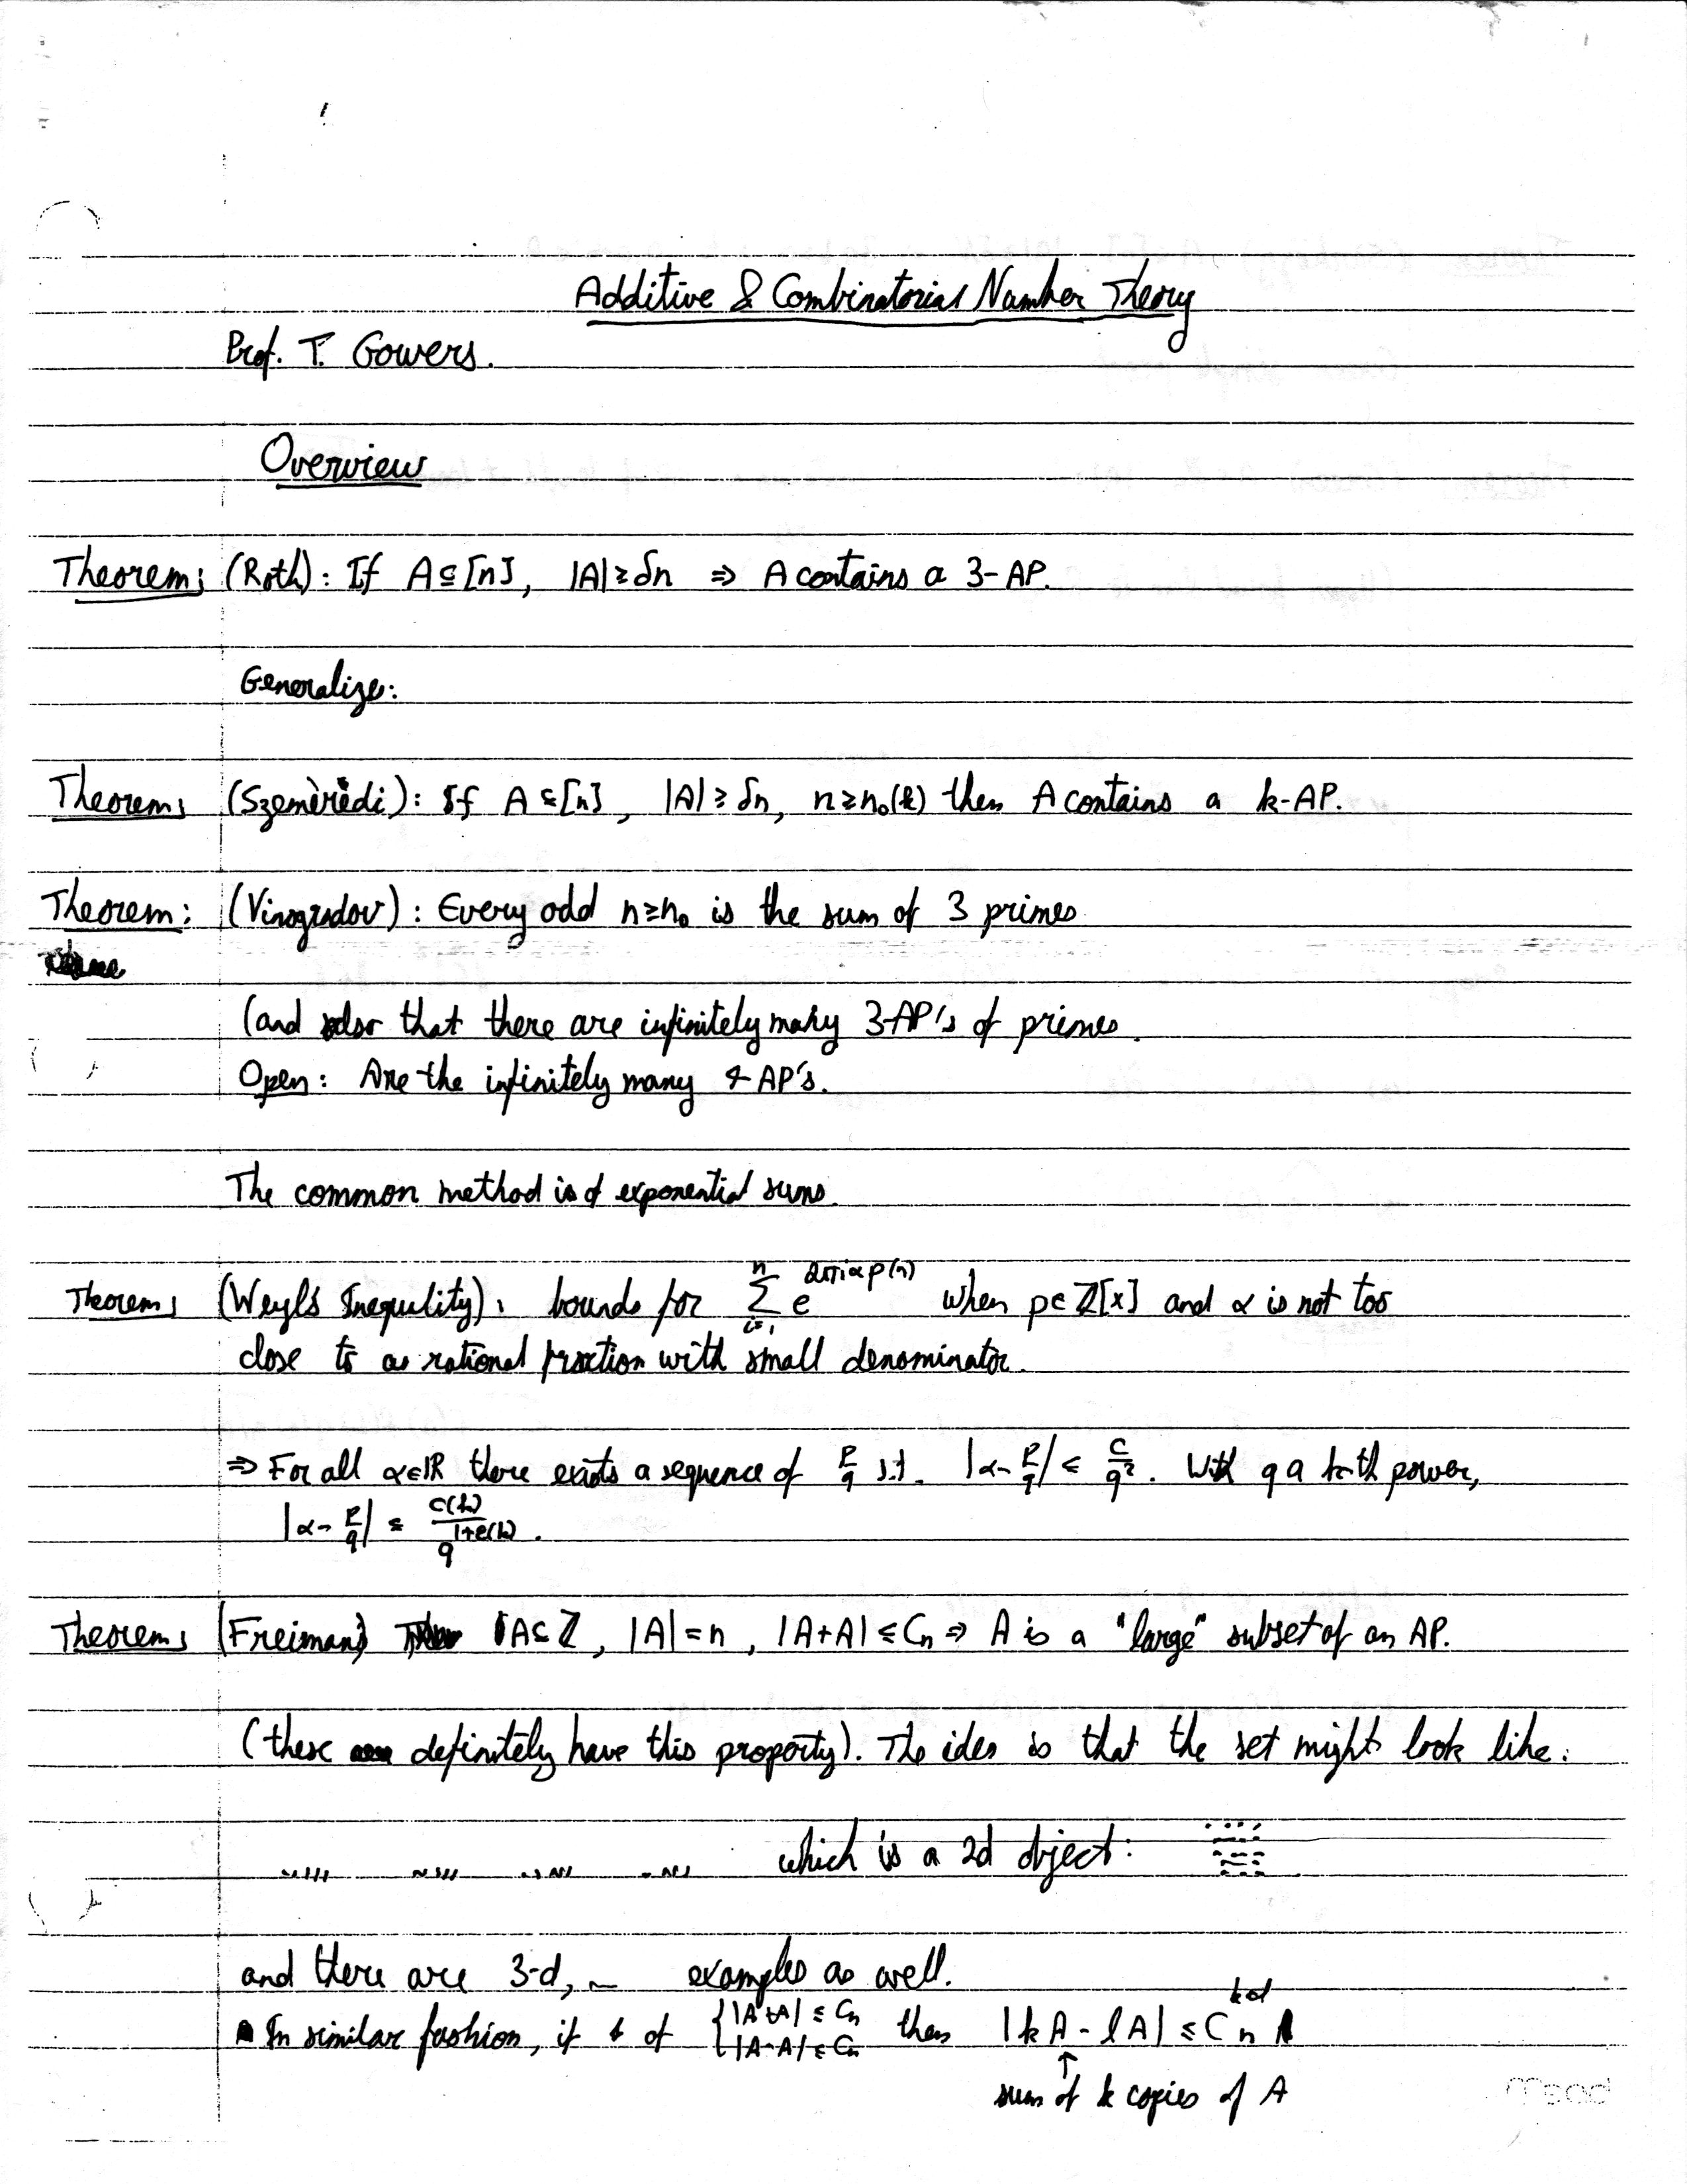 Additive & Combinatorial Number Theory
Prof. T. Gowers.
Overview
Theorem: (Roth): If A ⊆ [n], |A| ≥ δn ⇒ A contains a 3-AP.
Generalize:
Theorem: (Szemerèdi): If A ⊆ [n], |A| ≥ δn, n ≥ n₀(k) then A contains a k-AP.
Theorem: (Vinogradov): Every odd n ≥ n₀ is the sum of 3 primes
(and also that there are infinitely many 3-AP's of primes.
Open: Are the infinitely many 4 AP's.
The common method is of exponential sums.
Theorem: (Weyl's Inequality): bounds for ∑_{i=1}^{n} e^{2πiαp(n)} when p∈ℤ[x] and α is not too
close to a rational fraction with small denominator.
⇒ For all α∈ℝ there exists a sequence of p/q s.t. |α - p/q| < c/q². With q a k-th power,
|α - p/q| ≤ c(k)/q^{1+ε(k)}.
Theorem: (Freiman) A⊂ℤ, |A|=n, |A+A| ≤ Cn ⇒ A is a "large" subset of an AP.
(these definitely have this property). The idea is that the set might look like:
which is a 2d object:
and there are 3-d, ... examples as well.
In similar fashion, if of { |A+A| ≤ Cn |A-A| ≤ Cn then |kA - lA| ≤ C^{k+l} n
↑
sum of k copies of A
Mead